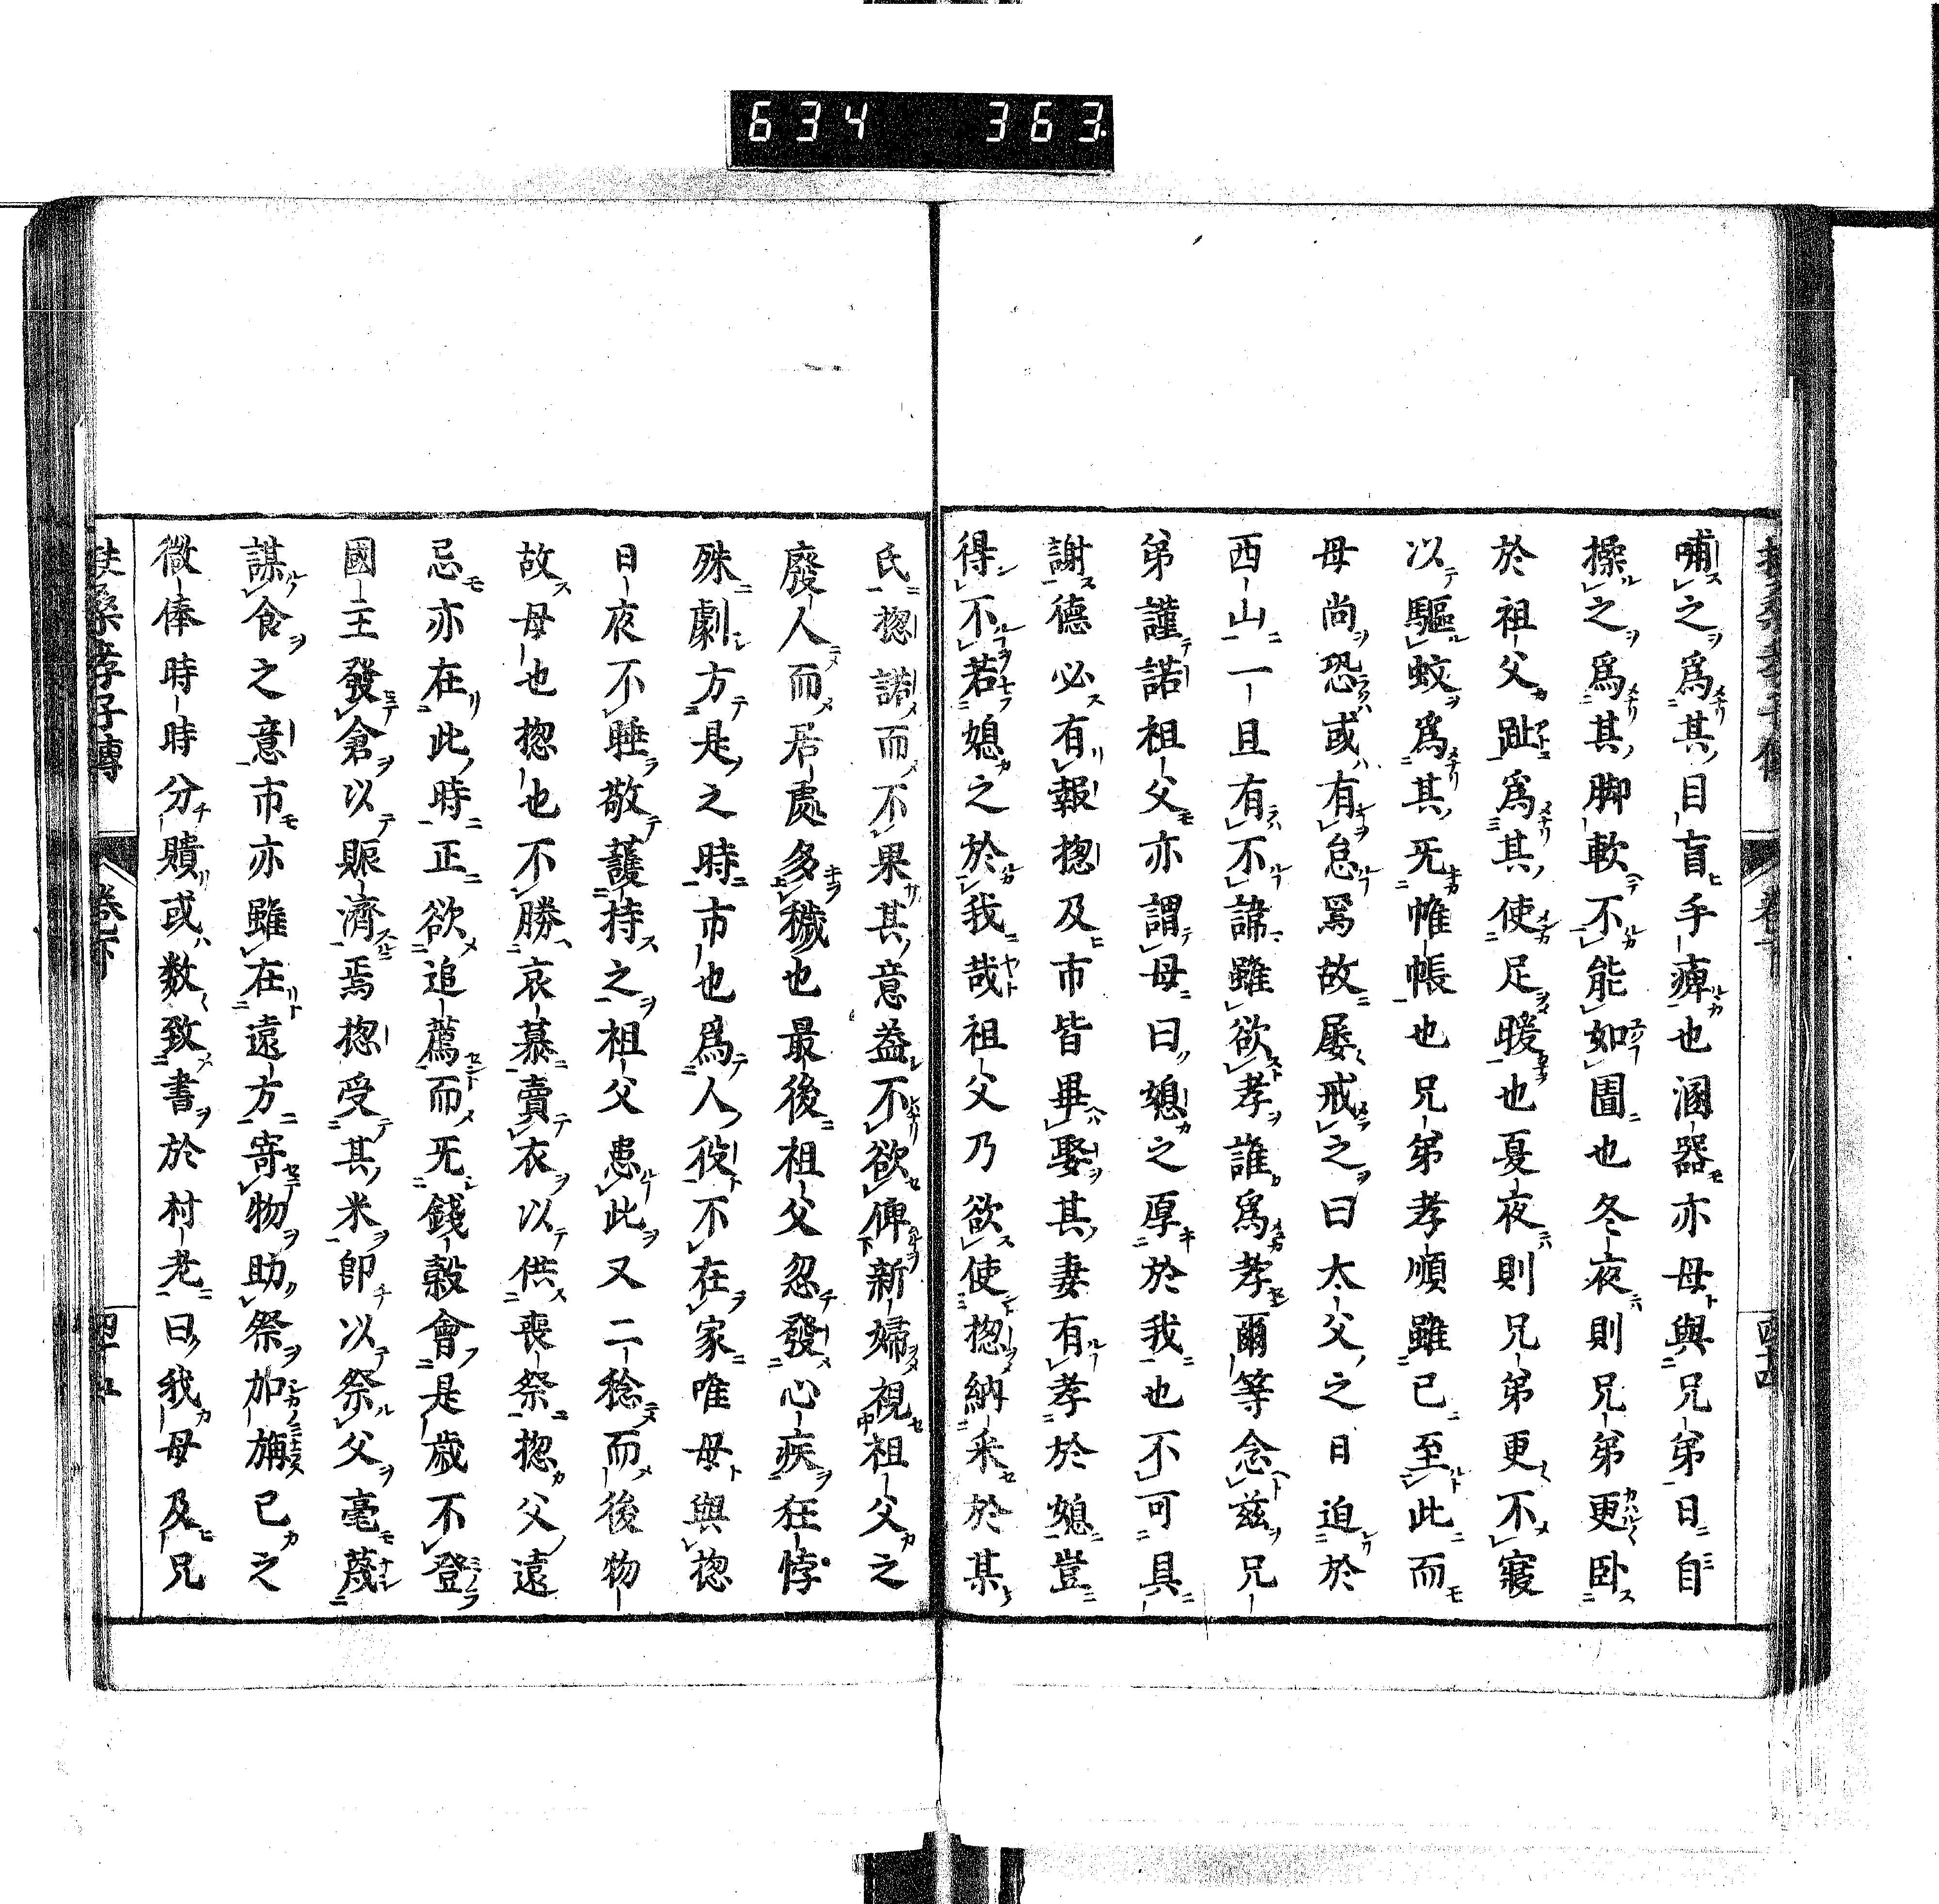 634 363
哺之爲其目盲手痺也溷器亦母與兄弟日自
操之爲其脚軟不能如圊也冬夜則兄弟更臥
於祖父趾爲其使足暖也夏夜則兄弟更不寢
以驅蚊爲其无帷帳也兄弟孝順雖已至此而
母尚恐或有怠焉故屡戒之曰太父之日迫於
西山一旦有不諱雖欲孝誰爲孝爾等念茲兄
弟謹諾祖父亦謂母曰媳之厚於我也不可具
謝德必有報揔及市皆畢娶其妻有孝於媳豈
得不若媳之於我哉祖父乃欲使揔納釆於某
氏揔諾而不果其意益不欲俾新婦視祖父之
廢人而居處多穢也最後祖父忽發心疾狂悖
殊劇方是之時市也爲人役不在家唯母與揔
日夜不睡敬護持之祖父患此又二稔而後物
故母也揔也不勝哀慕賣衣以供喪祭揔父遠
忌亦在此時正欲追薦而无錢穀會是歳不登
國主發倉以賑濟焉揔受其米卽以祭父毫蔑
謀食之意市亦雖在遠方寄物助祭加旃已之
微俸時時分贐或數致書於村老曰我母及兄
扶桑孝子傳
卷下